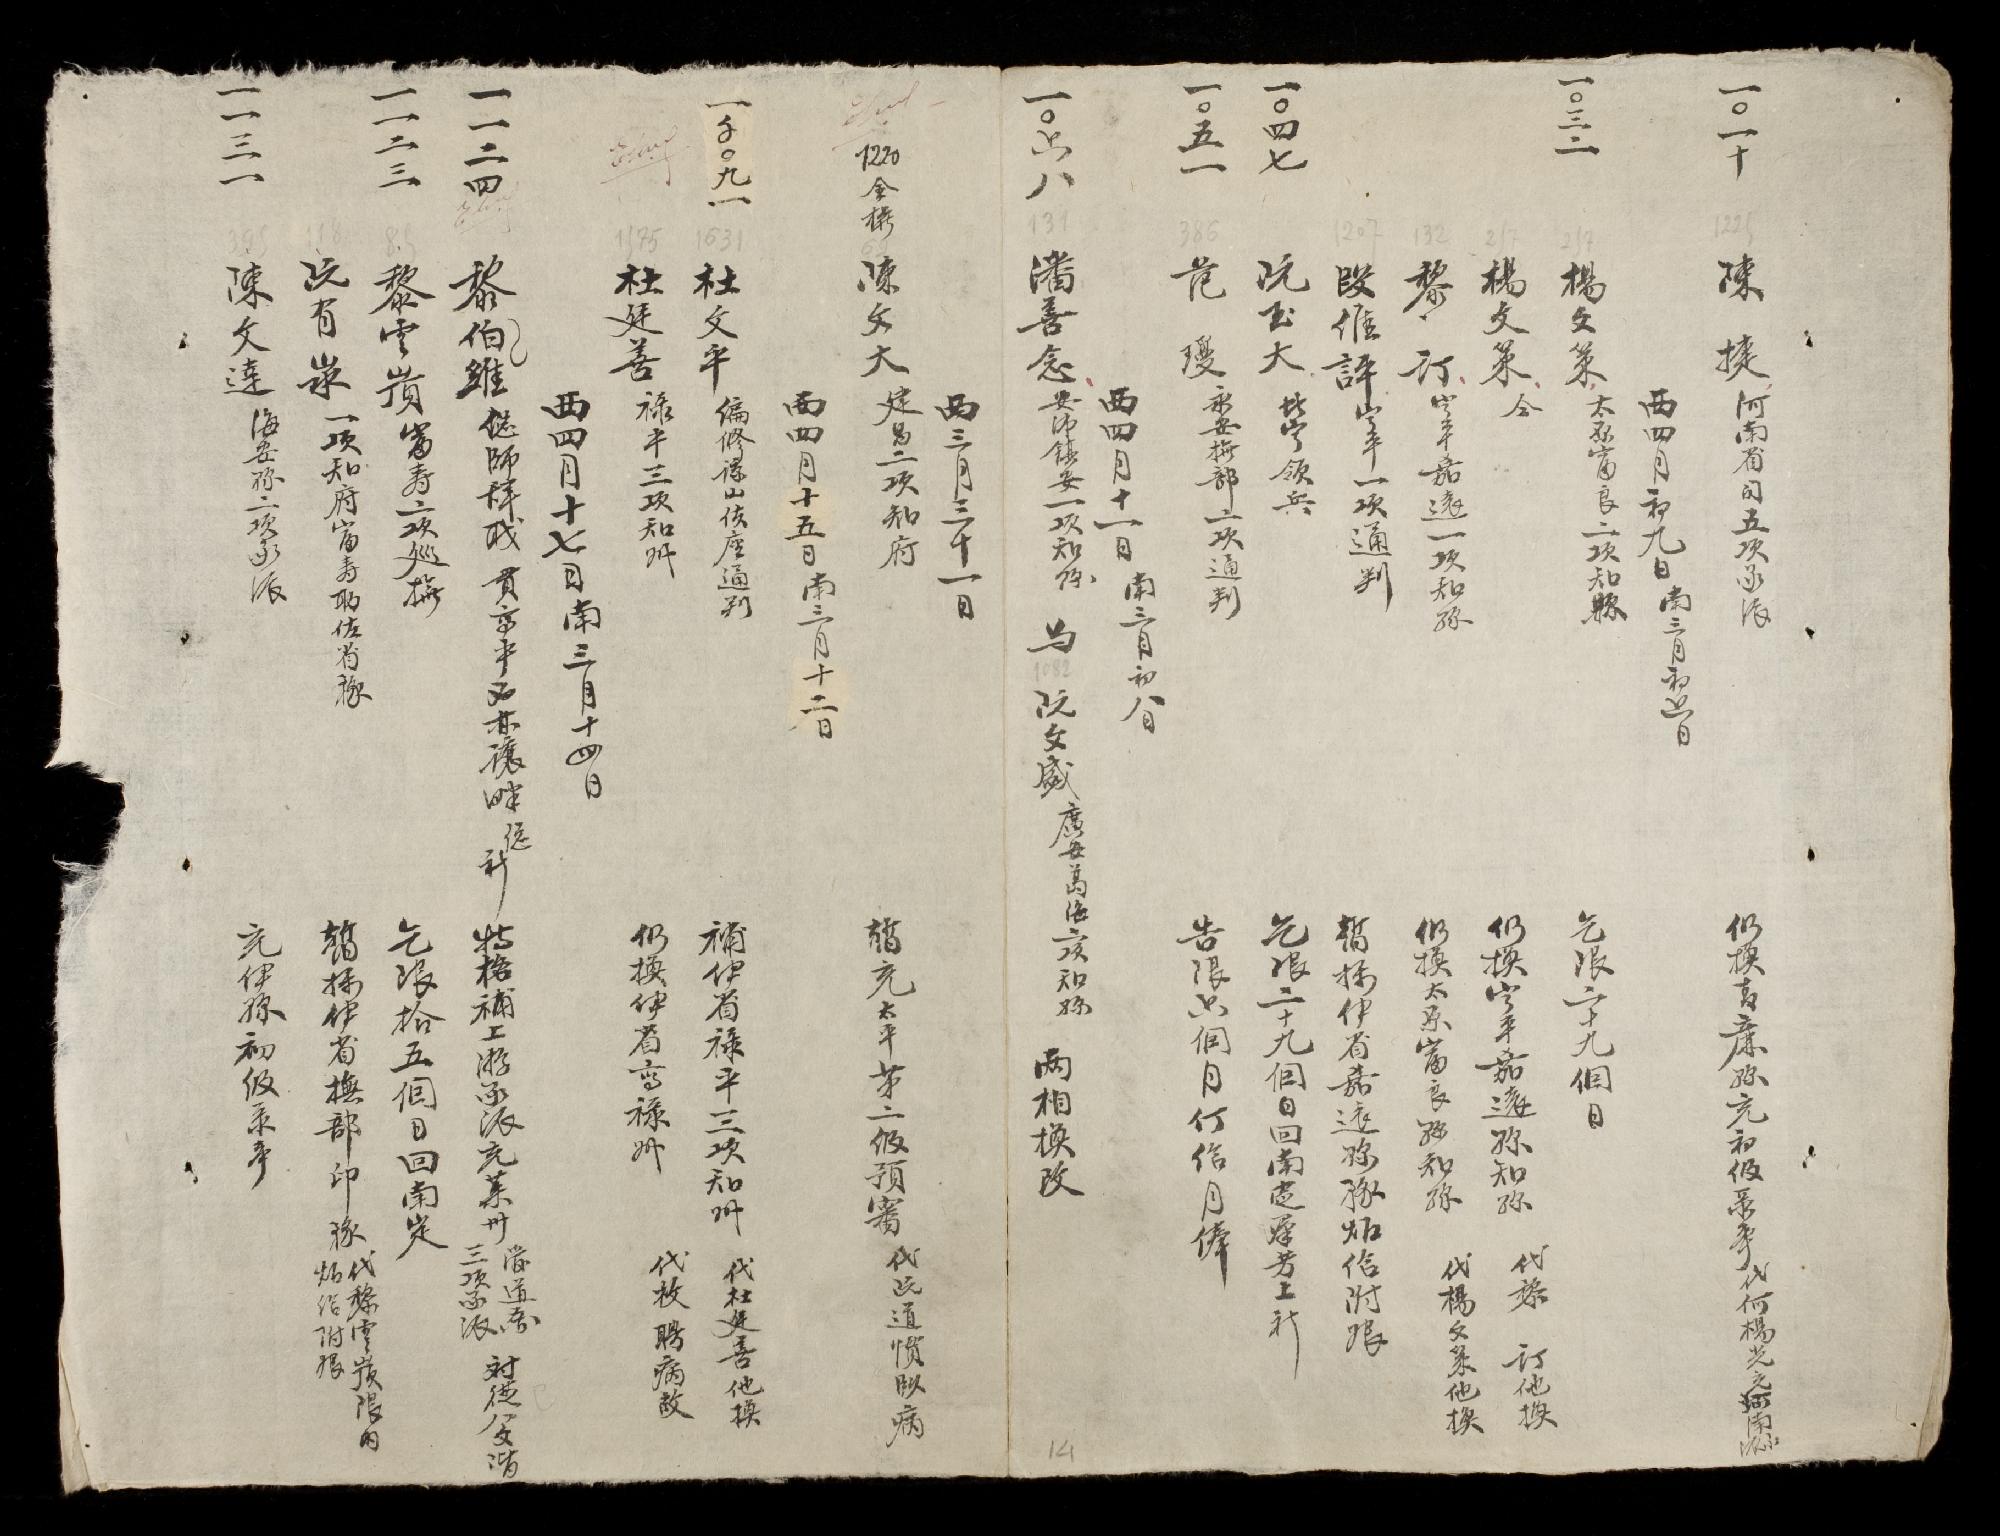 一〇一十 1225 陳捷 河南省司五項承派 仍換青廉縣充初級录事 代何楊光充河南派
西四月初九日 南三月初六日
一〇三二 217 楊文策 太原富良二項知縣 乞限二十九個日
217 楊文策 仝 仍換寧平嘉遠縣知縣 代黎訂他換
132 黎訂 寧平嘉遠一項知縣 仍換太原富良縣知縣 代楊文策他換
1207 段惟評 寧平一項通判 暫攝伊省嘉遠縣縣篆炤給附限
一〇四七 阮玉大 北寧領兵 乞限二十九個日回南定
一〇五一 386 范璦 永安撫部二項通判 告限六個月仃給月俸
西四月十一日 南三月初八日
一〇六八 131 潘善念 一項知縣 与 1082 阮文盛 廣安萬海二項知縣 兩相換改
西三月三十一日
1220 全權 陳文大 建昌二項知府 暫充太平第二級預審 代阮道慣臥病
西四月十五日 南三月十二日
一千〇九一 1631 杜文平 偏修諒山侯座通判 補伊省祿平三項知州 代杜廷善他換
1575 杜廷善 祿平三項知州 仍換伊省高祿州 代枚聘病故
西四月十七日 南三月十四日
一一二四 黎伯維 總師 貫高平 特格補上游承派充萊州 三項承派
一一二三 85 黎雲嶺 富壽二項巡撫 乞限拾五個日回南定
118 阮有 一項知府富壽助佐省務 暫攝伊省撫部印篆 代黎雲嶺限內 炤給附限
一一三一 395 陳文達 海安縣二項承派 充伊縣初級录事
14